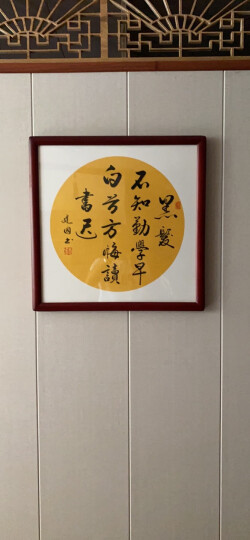 黑髮
不知勤學早
白首方悔讀
書遲
建國书